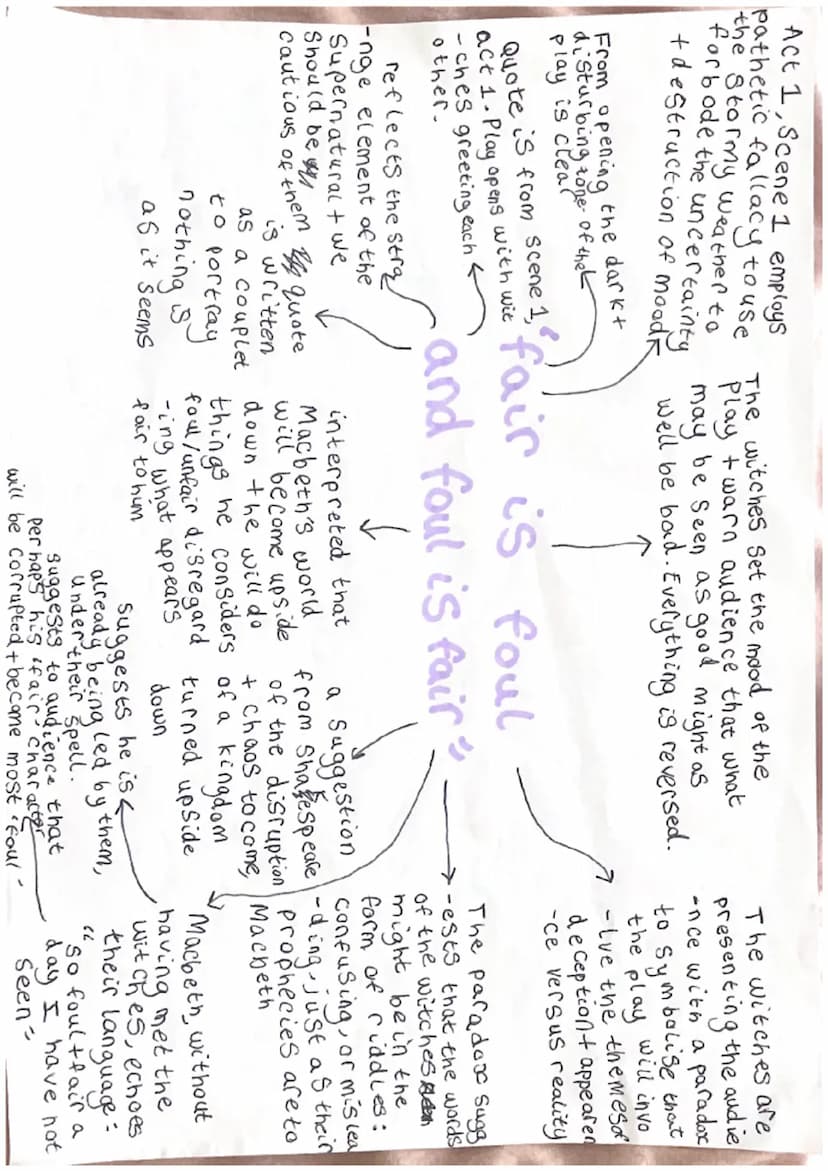 Act 1, Scene 1 employs
pathetic fallacy to use
the stormy weather to
forbode the uncertainty
+ destruction of mood
From opening the dark +
disturbing tone of the
play is clear
Quote is from scene 1,
act 1. Play opens with wit
-ches greeting each
other.
reflects the stra
-nge element of the
supernatural + we
should be
cautious of them
quote
is written
as a couplet
to portray
nothing is
as it seems
"fair is foul
and foul is fair"
The witches set the mood of the
play + warn audience that what
may be seen as good might as
well be bad. Everything is reversed.
interpreted that
Macbeth's world
will become upside
down the will do
things he considers
foul/unfair disregard
-ing what appears
fair to him
a suggestion
from Shakespeare
of the disruption
+ chaos to come,
of a kingdom
turned upside
down
The witches are
presenting the audie
-nce with a paradox
to symbolise that
the play will invo
-lve the themes of
deception + appearen
-ce versus reality
The paradox sugg
-ests that the words
of the witches
might be in the
form of riddles:
confusing, or mislea
-ding, just as their
prophecies are to
Macbeth
Macbeth, without
having met the
witches, echoes
their language:
"so foul + fair a
day I have not
seen"
suggests he is
already being led by them,
under their spell.
suggests to audience that
perhaps his 'fair' character
will be corrupted + become most 'foul'